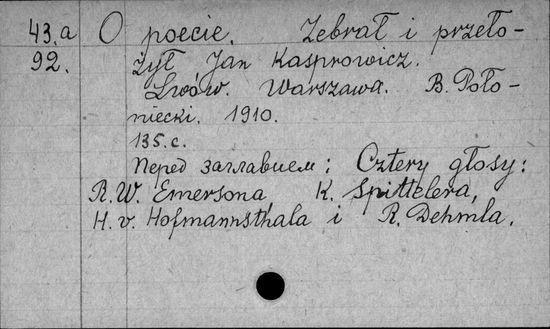 43.a O poecie. Zebrał i przeło-
92. żył Jan Kasprowicz.
Lwów. Warszawa. B. Poło-
niecki. 1910.
135.c.
Перед заглавием: Cztery głosy:
R.W. Emersona, K. Spittelera,
H. v. Hofmannsthala i R. Dehmla.